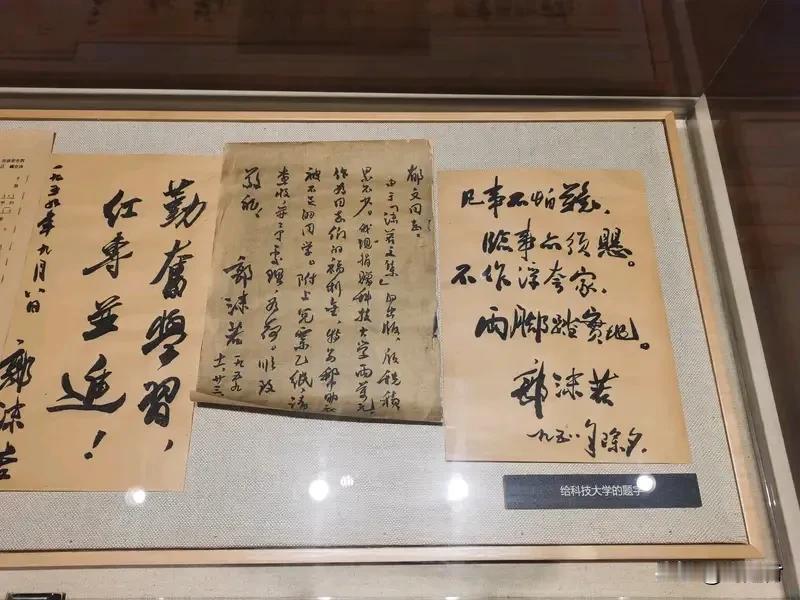 勤奮學習，
红專並進！
一九五九年九月八日
郭沫若
郁文同志：
由于「沫若文集」的出版，版税積
累不少。我现捐贈科技大学两萬元
作为同志们的福利金，特别帮助衣
被不足的同学。附上兑票乙纸，请
查收并予处理为荷。顺致
敬礼！
郭沫若 一九五九
十一、廿三、
凡事不怕難，
臨事亦须懸。
不作浮夸家，
两脚踏實地。
郭沫若
一九五八年除夕。
给科技大学的题字